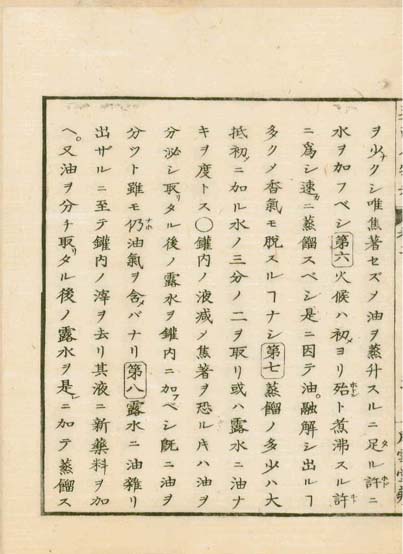 ヲ少クシ唯焦著セズメ油ヲ蒸升スルニ足ル許ニ
水ヲ加フベシ第六火候ハ初メヨリ殆ト煮沸スル許
ニ爲シ速ニ蒸餾スベシ是ニ因テ油融解シ出ルヿ
多クメ香氣モ脱スルヿナシ第七蒸餾ノ多少ハ大
抵初ニ加ル水ノ三分ノ二ヲ取リ或ハ露水ニ油ナ
キヲ度トス○罐内ノ液減メ焦著ヲ恐ル𪜈ハ油ヲ
分泌シ取リタル後ノ露水ヲ罐内ニ加フベシ既ニ油ヲ
分ツト雖モ仍油氣ヲ含メバナリ第八露水ニ油雜リ
出ザルニ至テ罐内ノ滓ヲ去リ其液ニ新藥料ヲ加
ヘ又油ヲ分チ取リタル後ノ露水ヲ是ニ加テ蒸餾ス